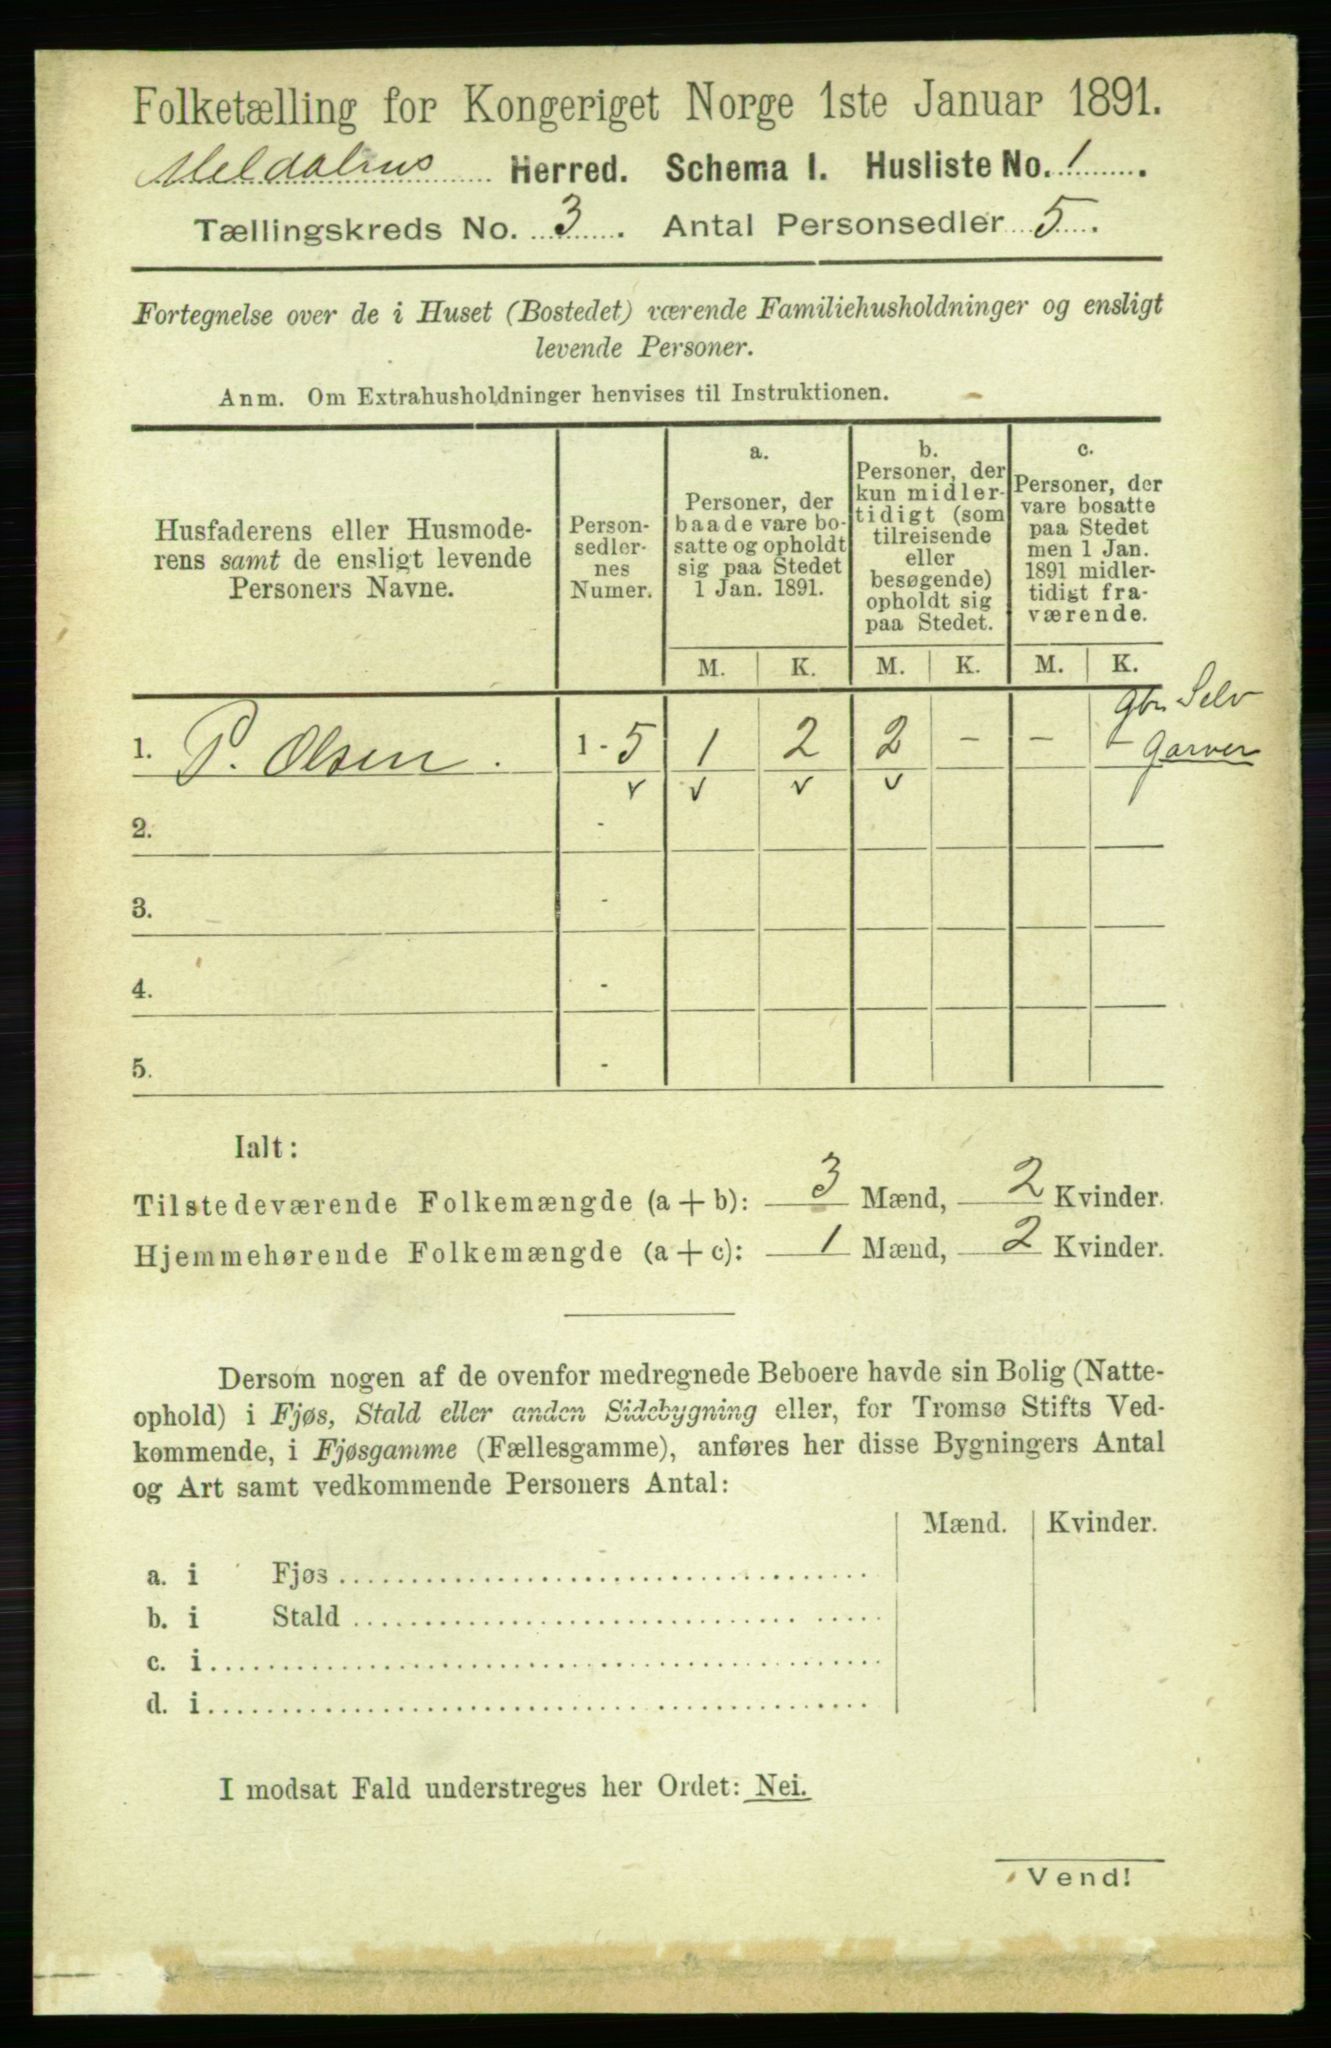 Folketælling for Kongeriget Norge 1ste Januar 1891.
Meldalens Herred. Schema I. Husliste No. 1.
Tællingskreds No. 3. Antal Personsedler 5.
Fortegnelse over de i Huset (Bostedet) værende Familiehusholdninger og ensligt
levende Personer.
Anm. Om Extrahusholdninger henvises til Instruktionen.
Husfaderens eller Husmode-
rens samt de ensligt levende
Personers Navne.
Person-
sedler-
nes
Numer.
a.
Personer, der
baade vare bo-
satte og opholdt
sig paa Stedet
1 Jan. 1891.
b.
Personer, der
kun midler-
tidigt (som
tilreisende
eller
besøgende)
opholdt sig
paa Stedet.
c.
Personer, der
vare bosatte
paa Stedet
men 1 Jan.
1891 midler-
tidigt fra-
værende.
M. K. M. K. M. K.
Gbr. Selv
1. P. Olsen. 1 - 5 1 2 2 - - - Garver
v v v v
2. -
3. -
4. -
5. -
Ialt:
Tilstedeværende Folkemængde (a + b): 3 Mænd, 2 Kvinder.
Hjemmehørende Folkemængde (a + c): 1 Mænd, 2 Kvinder.
Dersom nogen af de ovenfor medregnede Beboere havde sin Bolig (Natte-
ophold) i Fjøs, Stald eller anden Sidebygning eller, for Tromsø Stifts Ved-
kommende, i Fjøsgamme (Fællesgamme), anføres her disse Bygningers Antal
og Art samt vedkommende Personers Antal:
Mænd. Kvinder.
a. i Fjøs
b. i Stald
c. i
d. i
I modsat Fald understreges her Ordet: Nei.
Vend!